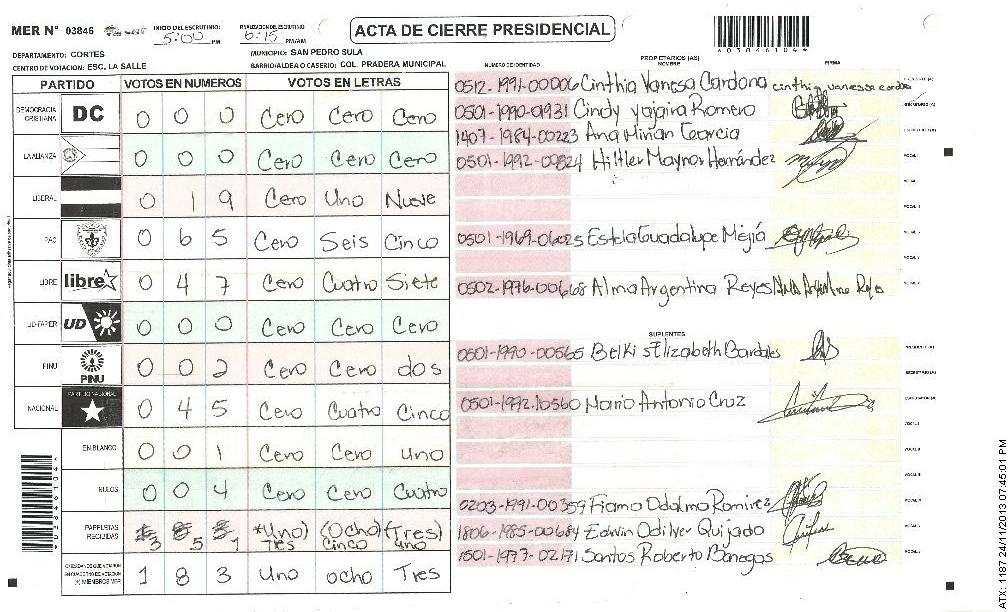 MER N° 03846 INICIO DEL ESCRUTINIO: 5:00 PM FINALIZACION DEL ESCRUTINIO: 6:15 PM/AM
ACTA DE CIERRE PRESIDENCIAL
DEPARTAMENTO: CORTES MUNICIPIO: SAN PEDRO SULA
CENTRO DE VOTACION: ESC. LA SALLE BARRIO/ALDEA O CASERIO: COL. PRADERA MUNICIPAL
PARTIDO VOTOS EN NUMEROS VOTOS EN LETRAS
DEMOCRACIA CRISTIANA DC 0 0 0 Cero Cero Cero
LA ALIANZA 0 0 0 Cero Cero Cero
LIBERAL 0 1 9 Cero Uno Nueve
PAC 0 6 5 Cero Seis Cinco
LIBRE libre 0 4 7 Cero Cuatro Siete
UD-FAPER UD 0 0 0 Cero Cero Cero
PINU PINU 0 0 2 Cero Cero dos
NACIONAL PARTIDO NACIONAL 0 4 5 Cero Cuatro Cinco
EN BLANCO 0 0 1 Cero Cero uno
NULOS 0 0 4 Cero Cero Cuatro
PAPELETAS RECIBIDAS 3 5 1 *Uno) (Ocho) (Tres)
Tres Cinco uno
CIUDADANOS QUE VOTARON 1 8 3 Uno ocho Tres
NUMERO DE IDENTIDAD PROPIETARIOS (AS) NOMBRE FIRMA
0512-1991-00006 Cinthia Vanesa Cardona cinthia vanessa cardona
0501-1990-01931 Cindy yajaira Romero
1407-1984-00223 Ana Mirian Garcia
0501-1992-09824 Hiltler Maynor Hernández
0501-1969-06025 Estela Guadalupe Mejía
0502-1976-00668 Alma Argentina Reyes Alma Argentina Reyes
SUPLENTES
0501-1990-00565 Belki s Elizabeth Bardales
0501-1992.10560 Mario Antonio Cruz
0203-1991-00359 Fiama Odalma Ramirez
1806-1985-00684 Edwin Odilver Quijado
1501-1977-02171 Santos Roberto Bánegas
ATX: 1187 24/11/2013 07:45:01 PM